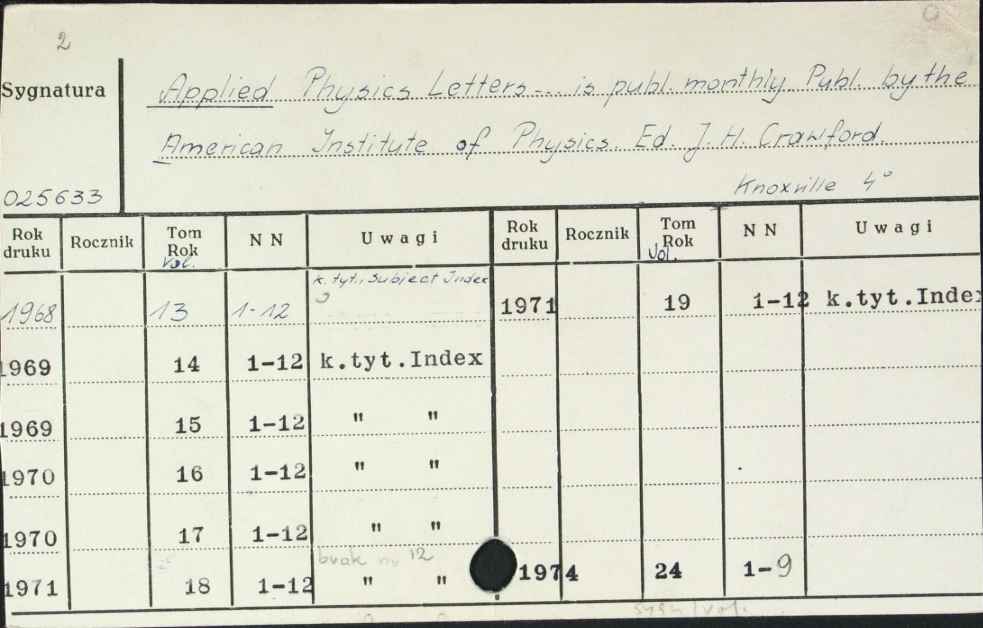 2
Sygnatura
Applied Physics Letters... is publ. monthly Publ. by the
American Institute of Physics. Ed. J. H. Crawford.
Knoxville 4°
025633
Rok druku Rocznik Tom Rok Vol. N N Uwagi Rok druku Rocznik Tom Rok Vol. N N Uwagi
1968 13 1-12 k. tyt., Subject Index 1971 19 1-12 k.tyt.Index
1969 14 1-12 k.tyt.Index
1969 15 1-12 " "
1970 16 1-12 " "
1970 17 1-12 " "
brak nr 12
1971 18 1-12 " " 1974 24 1-9